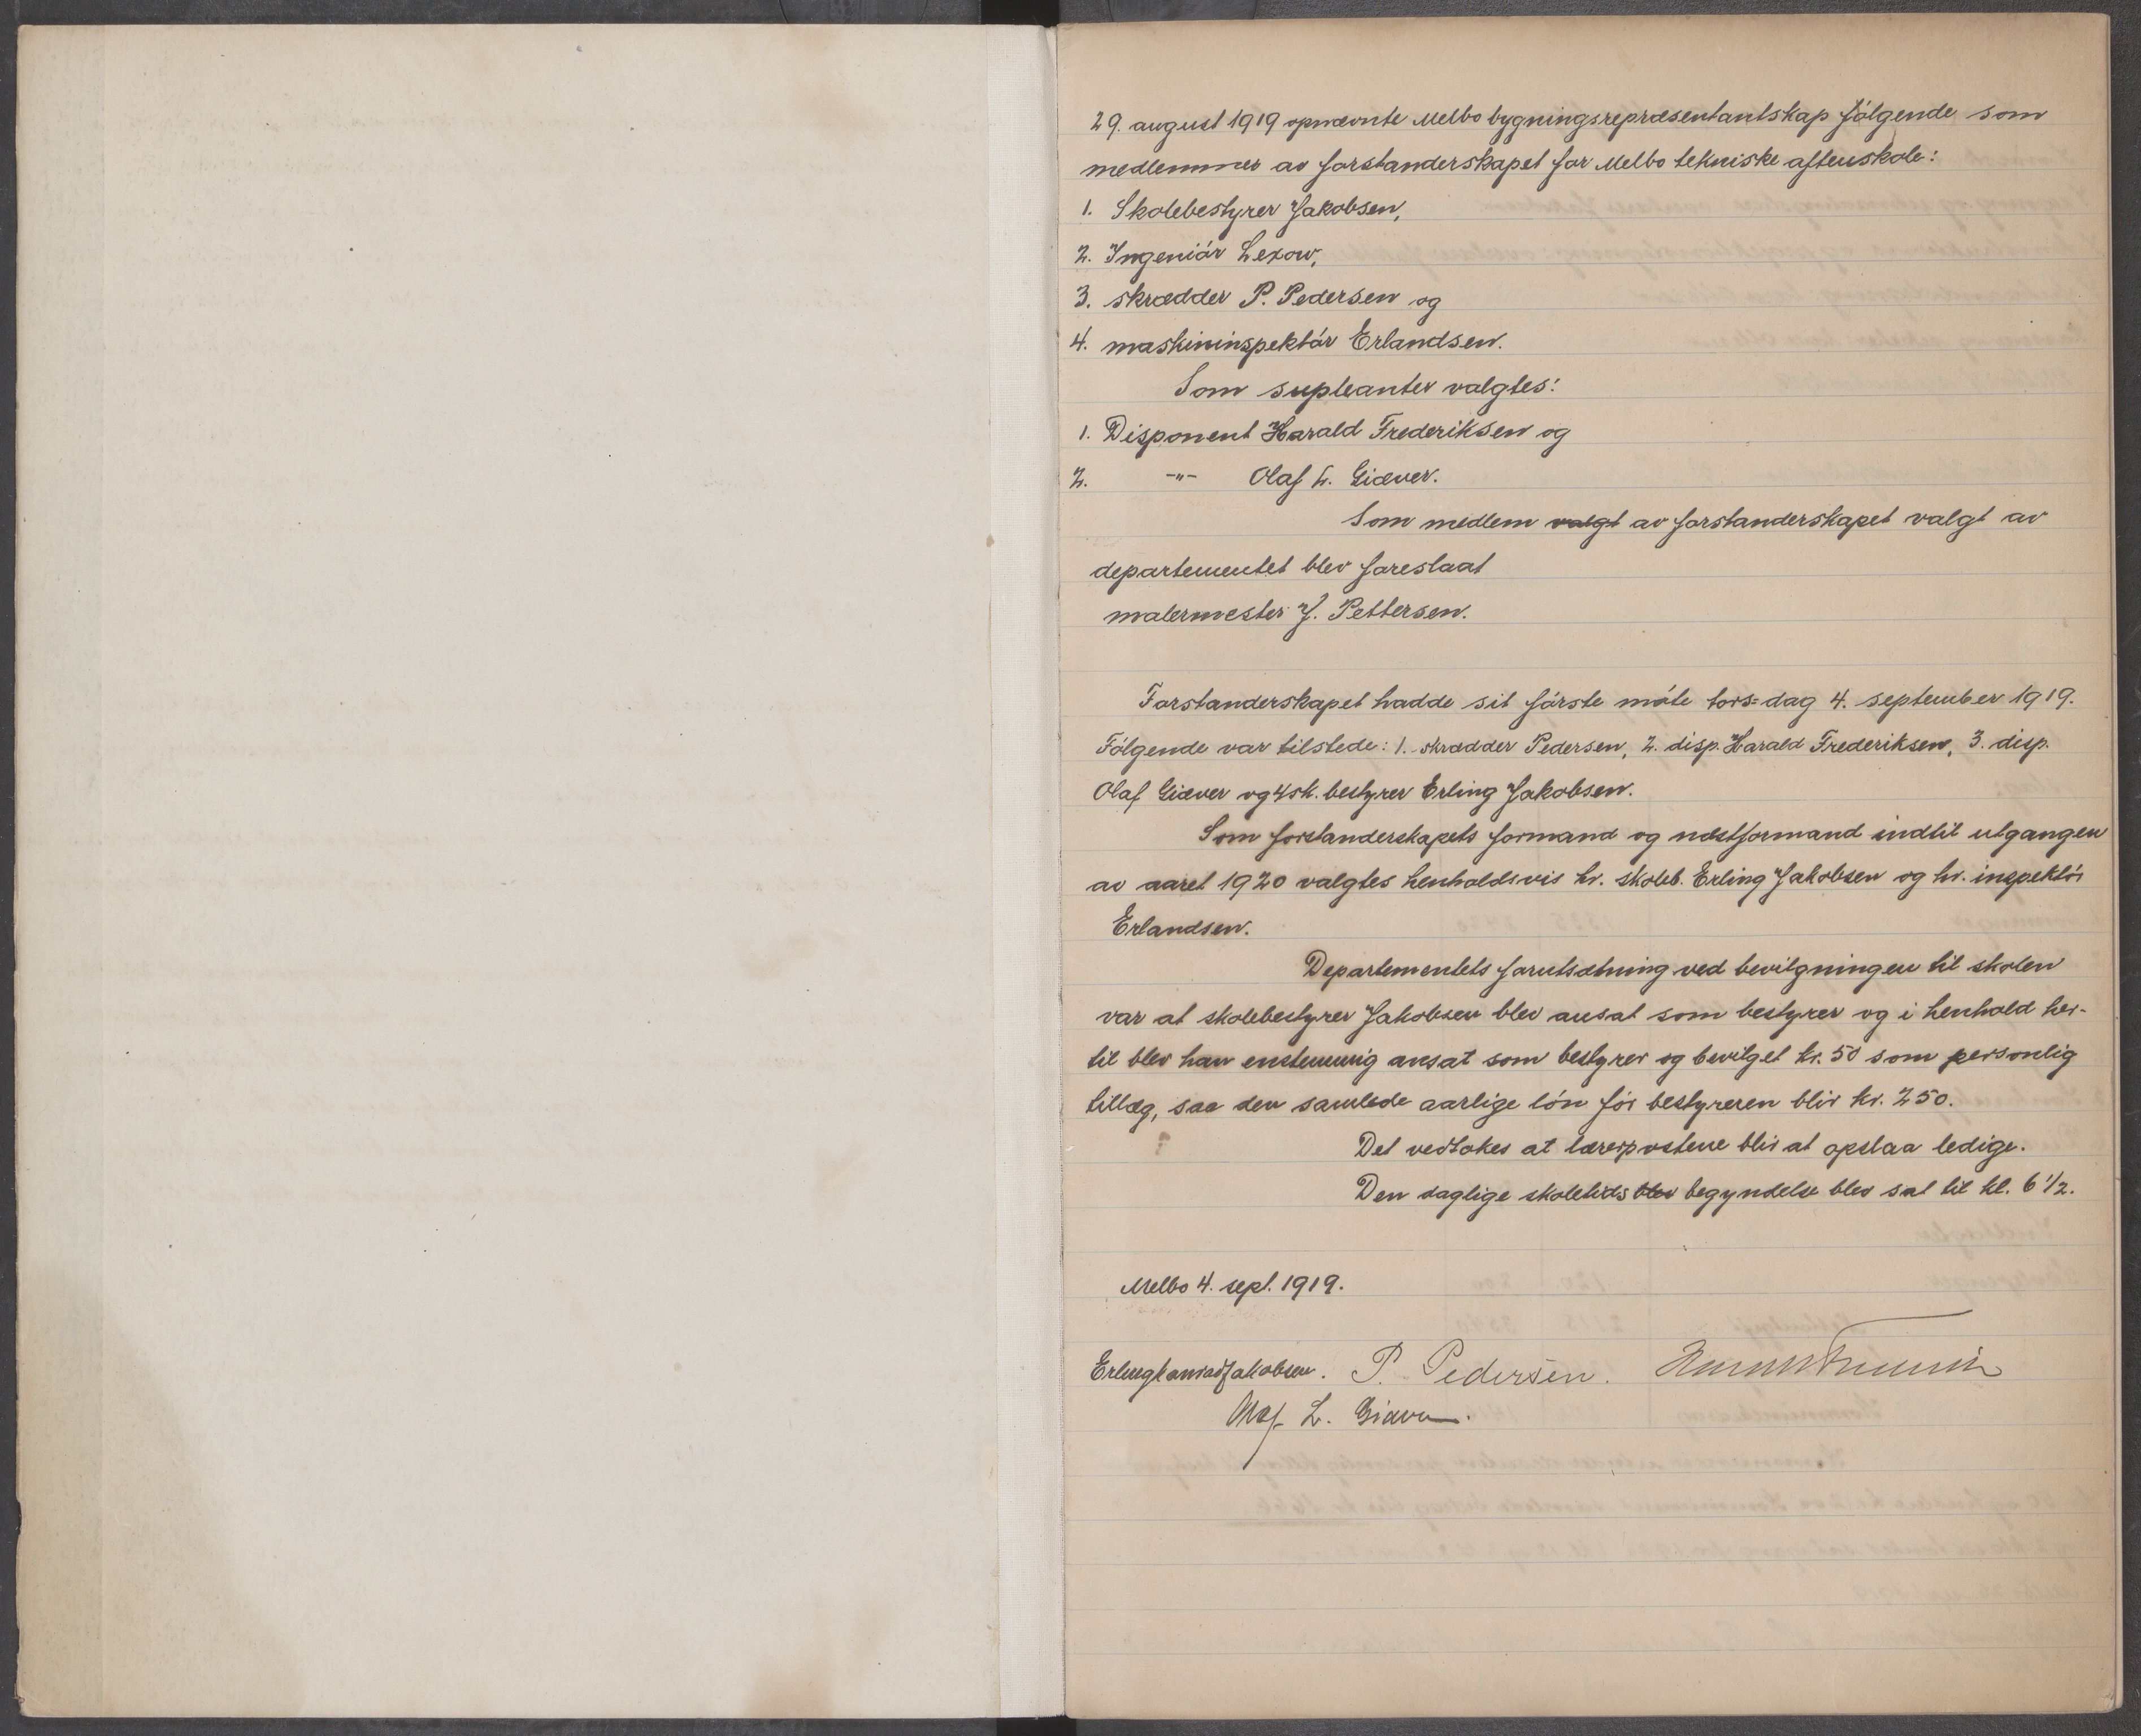 29. august 1919 opnævnte Melbo bygningsrepræsentantskap følgende som
medlemmer av forstanderskapet for Melbo tekniske aftenskole:
1. Skolebestyrer Jakobsen,
2. Ingeniør Lexow,
3. skrædder P. Pedersen og
4. maskininspektør Erlandsen.
Som supleanter valgtes:
1. Disponent Harald Frederiksen og
2. -"- Olaf L. Giæver.
Som medlem valgt av forstanderskapet valgt av
departementet blev foreslaat
malermester J. Pettersen.
Forstanderskapet hadde sit første møte tors=dag 4. september 1919.
Følgende var tilstede: 1. skrædder Pedersen, 2. disp. Harald Frederiksen, 3. disp.
Olaf Giæver og 4 sk. bestyrer Erling Jakobsen.
Som forstanderskapets formand og næstformand indtil utgangen
av aaret 1920 valgtes henholdsvis hr. skoleb. Erling Jakobsen og hr. inspektør
Erlandsen.
Departementets forutsætning ved bevilgningen til skolen
var at skolebestyrer Jakobsen blev ansat som bestyrer og i henhold her-
til blev han enstemmig ansat som bestyrer og bevilget kr. 50 som personlig
tillæg, saa den samlede aarlige løn før bestyreren blir kr. 250.
Det vedtokes at lærerpostene blir at opslaa ledige.
Den daglige skoletids blev begyndelse blev sat til kl. 6 1/2.
Melbo 4. sept. 1919.
Erling Konrad Jakobsen. P. Pedersen.
Olaf L. Giæver.